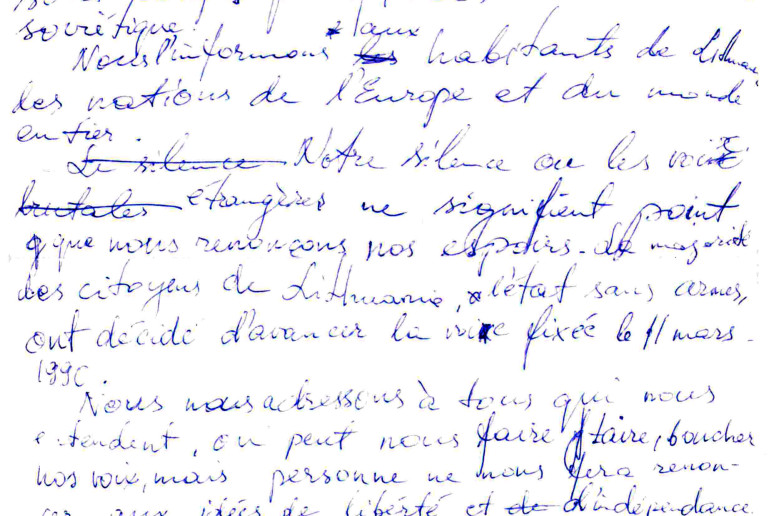 soviétique.
Nous l'informons aux les habitants de Lithuanie,
des nations de l'Europe et du monde
entier.
Le silence Notre silence ou les voix
brutales étrangères ne signifient point
que nous renonçons nos espoirs. La majorité
des citoyens de Lithuanie, l'état sans armes,
ont décidé d'avancer la voie fixée le 11 mars
1990
Nous nous adressons à tous qui nous
entendent, on peut nous faire taire, boucher
nos voix, mais personne ne nous fera renon-
cer aux idées de liberté et de d'indépendance